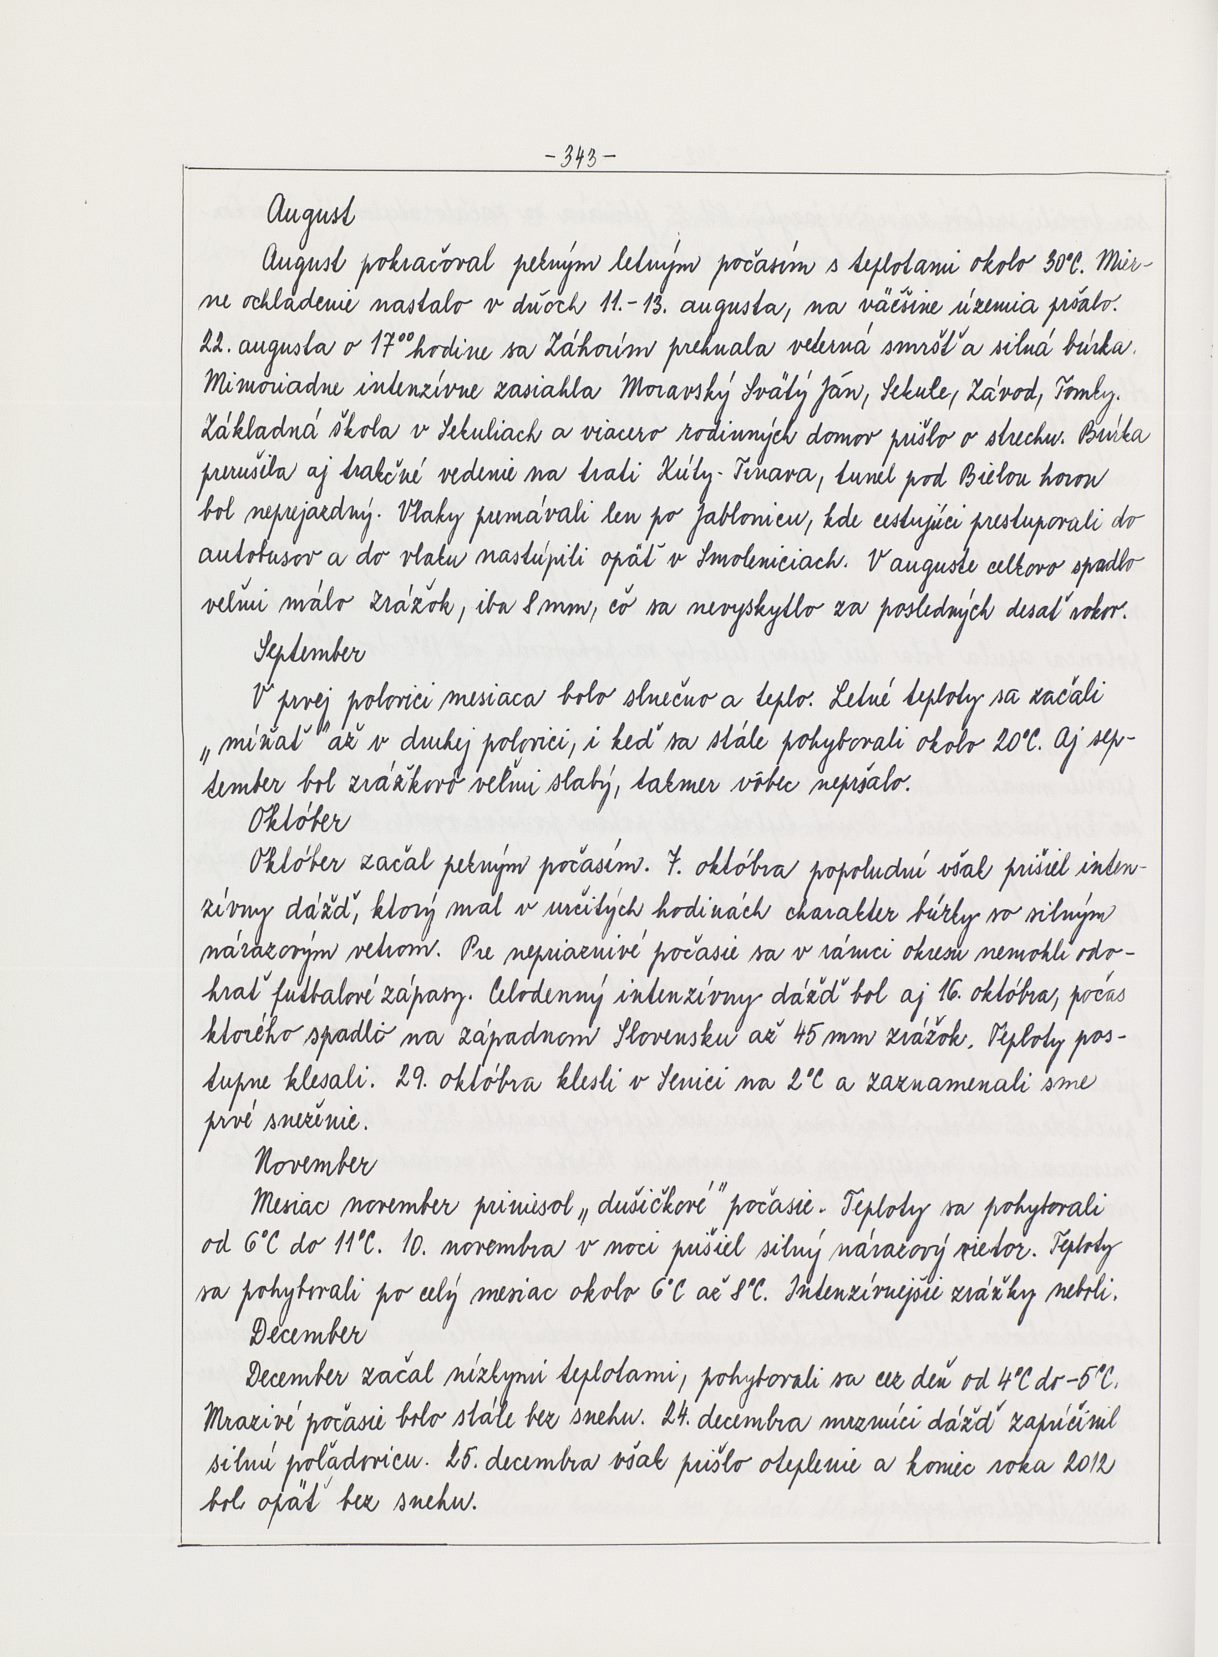 - 343 -
August
August pokračoval pekným letným počasím s teplotami okolo 30°C. Mier-
ne ochladenie nastalo v dňoch 11.-13. augusta, na väčšine územia pršalo.
22. augusta o 17⁰⁰ hodine sa Záhorím prehnala veterná smršť a silná búrka.
Mimoriadne intenzívne zasiahla Moravský Svätý Ján, Sekule, Závod, Tomky.
Základná škola v Sekuliach a viacero rodinných domov prišlo o strechu. Búrka
prerušila aj trakčné vedenie na trati Kúty - Trnava, tunel pod Bielou horou
bol neprejazdný. Vlaky premávali len po Jablonicu, kde cestujúci prestupovali do
autobusov a do vlaku nastúpili opäť v Smoleniciach. V auguste celkovo spadlo
veľmi málo zrážok, iba 8 mm, čo sa nevyskytlo za posledných desať rokov.
September
V prvej polovici mesiaca bolo slnečno a teplo. Letné teploty sa začali
„míňať" až v druhej polovici, i keď sa stále pohybovali okolo 20°C. Aj sep-
tember bol zrážkovo veľmi slabý, takmer vôbec nepršalo.
Október
Október začal pekným počasím. 7. októbra popoludní však prišiel inten-
zívny dážď, ktorý mal v určitých hodinách charakter búrky so silným
nárazovým vetrom. Pre nepriaznivé počasie sa v rámci okresu nemohli odo-
hrať futbalové zápasy. Celodenný intenzívny dážď bol aj 16. októbra, počas
ktorého spadlo na západnom Slovensku až 45 mm zrážok. Teploty pos-
tupne klesali. 29. októbra klesli v Senici na 2°C a zaznamenali sme
prvé sneženie.
November
Mesiac november priniesol „dušičkové" počasie. Teploty sa pohybovali
od 6°C do 11°C. 10. novembra v noci prišiel silný nárazový vietor. Teploty
sa pohybovali po celý mesiac okolo 6°C až 8°C. Intenzívnejšie zrážky neboli.
December
December začal nízkymi teplotami, pohybovali sa cez deň od 4°C do -5°C.
Mrazivé počasie bolo stále bez snehu. 24. decembra mrznúci dážď zapríčinil
silnú poľadovicu. 25. decembra však prišlo oteplenie a koniec roka 2012
bol opäť bez snehu.